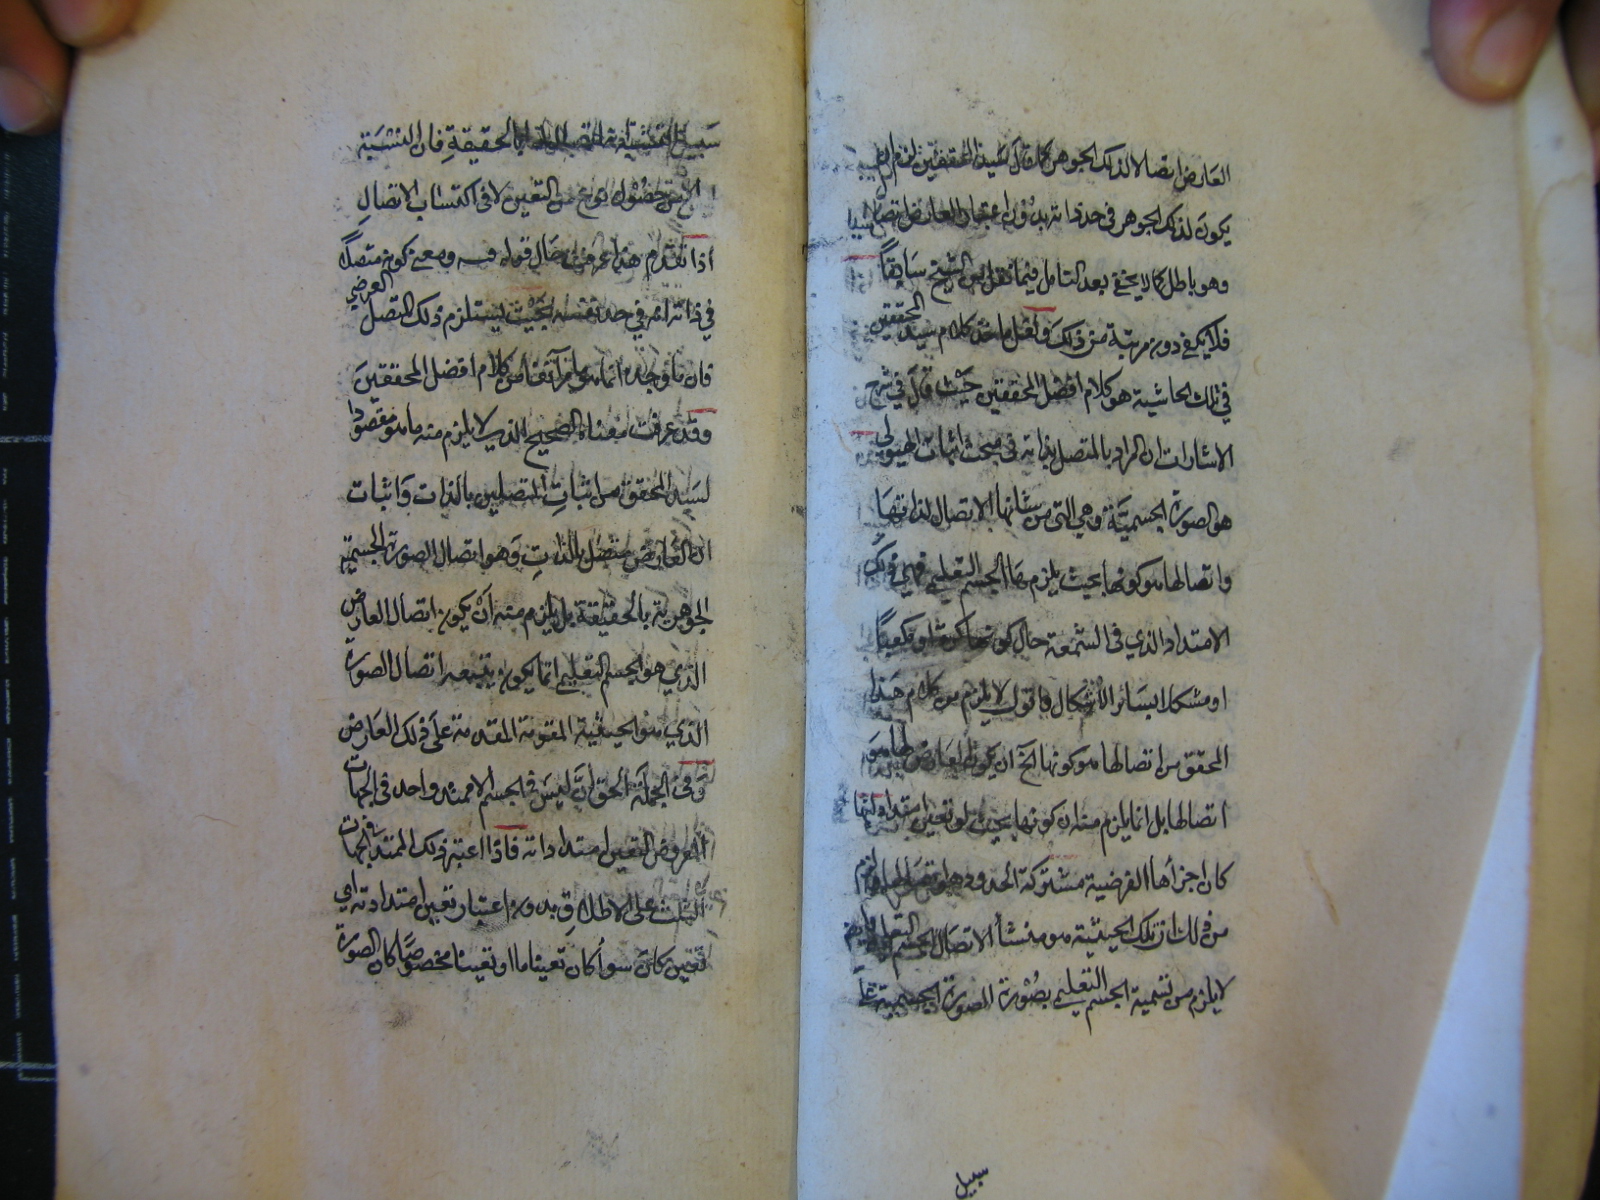 العارض اتصالا لذلك الجوهر كما قال سيد المحققين لزم ان
يكون لذلك الجوهر في حد ذاته بدون اعتبار العارض اتصال
وهو باطل كما لا يخفى بعد التامل فيما نقل من الشيخ سابقا
فلا يكفي دونه مرتبة من ذلك ولعل ماخذ كلام سيد المحققين
في تلك الحاشية هو كلام افضل المحققين حيث قال في شرح
الاشارات ان المراد بالمتصل بذاته في مبحث اثبات الهيولى
هو الصورة الجسمية وهي التي من شانها الاتصال لذاتها
واتصالها هو كونها بحيث يلزمها الجسم التعليمي فهي ذلك
الامتداد الذي في الشمعة حال كونها كرة او مكعبا
او مشكلا بسائر الاشكال فاقول لا يلزم من كلام هذا
المحقق من اتصالها هو كونها الخ ان يكون العارض لها هو
اتصالها بل انما يلزم منه ان كونها بحيث لو تعين
كان اجزاها الفرضية مشتركة الحدود هو
من ذلك ان تلك الحيثية هو منشأ الاتصال الجسم التعليمي
لا يلزم من تسمية الجسم التعليمي بصورة الصورة الجسمية على
سبيل
سبيل بالحقيقة فان التشبه
في حصول نوع من التعين لا في اكتساب الاتصال
اذا تقدم هذا عرفت حال قوله فيه ومعنى كونه متصلا
في ذاته انه في حد نفسه بحيث يستلزم ذلك المتصل العرضي
فان ماخوذه انما هو ما مر آنفا من كلام افضل المحققين
وقد عرفت معناه الصحيح الذي لا يلزم منه ما هو مقصود
لسيد المحقق من اثبات المتصلين بالذات واثبات
ان العارض متصل بالذات وهو اتصال الصورة الجسمية
الجوهرية بالحقيقة بل يلزم منه ان يكون اتصال العارض
الذي هو الجسم التعليمي انما يكون بتبعية اتصال الصورة
الذي هو الحيثية المقومة المقدمة على ذلك العارض
وفي الجملة الحق ان ليس في الجسم الا ممتد واحد في الجهات
المعروض لتعين امتداداته فاذا اعتبر ذلك الممتد في الجهات
الثلث على الاطلاق بدون اعتبار تعين امتداداته اي
تعين كان سواء كان تعينا ما او تعينا مخصوصا كان الصورة